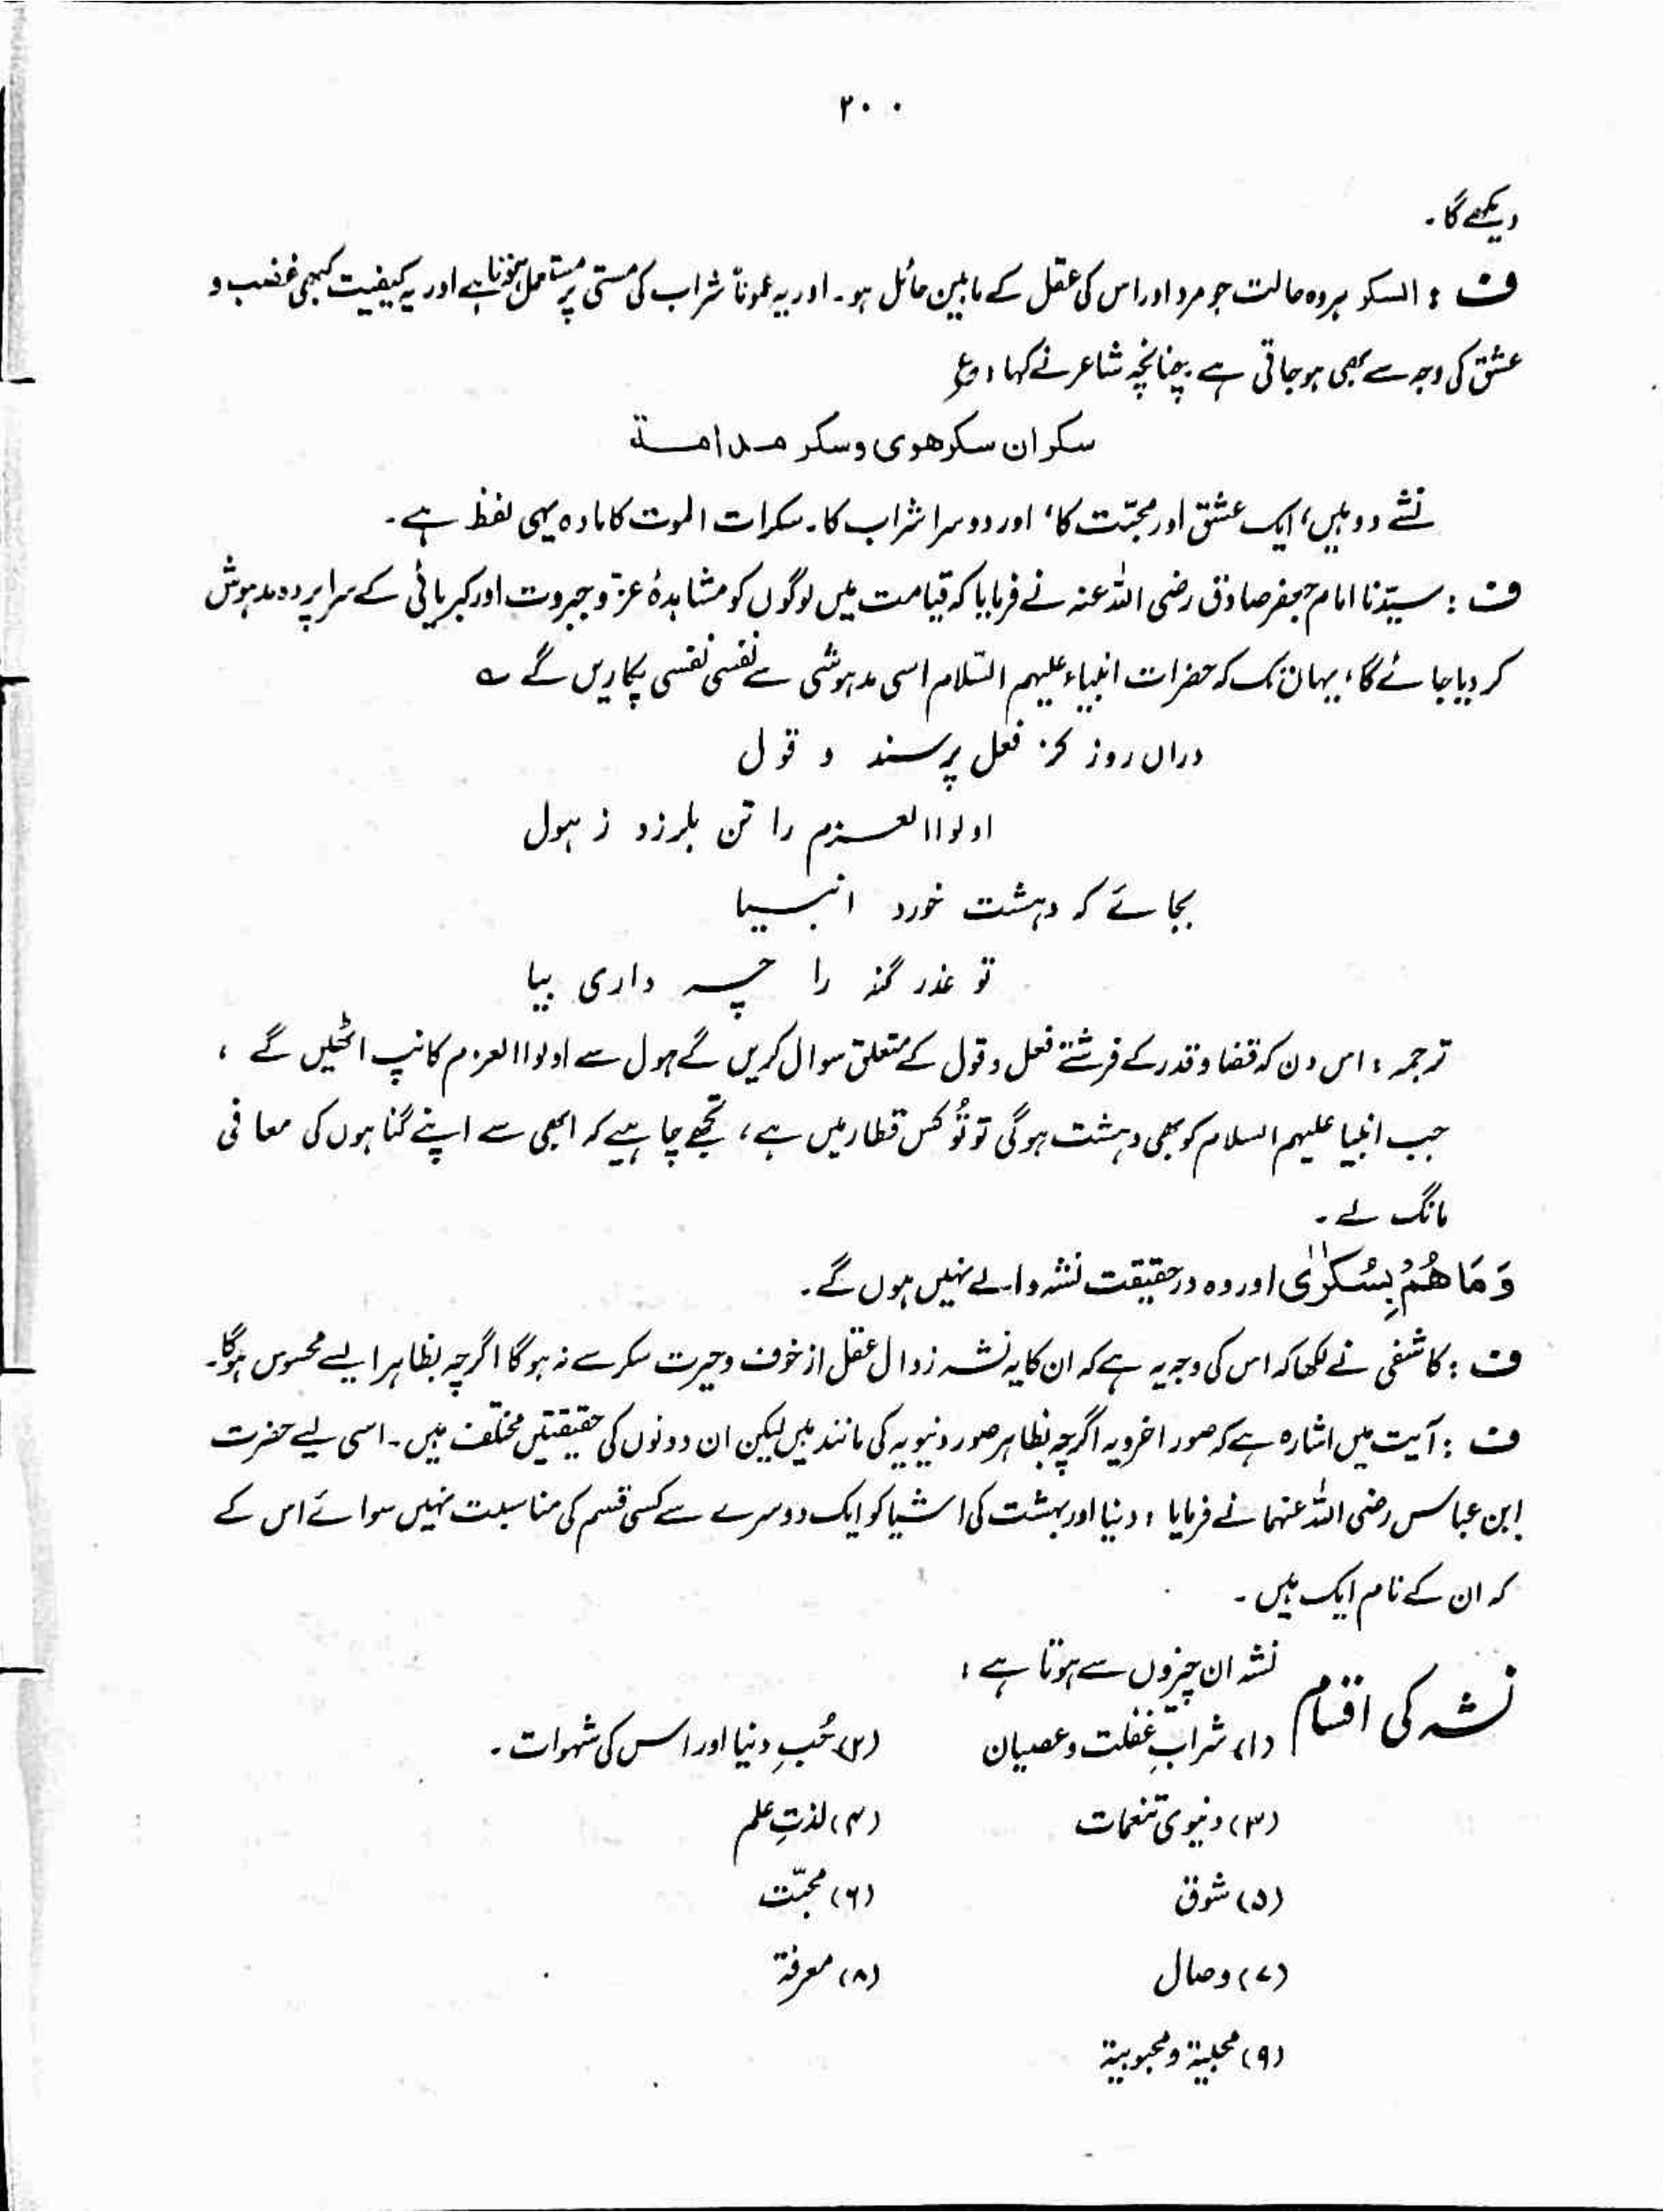 ۲۰۰
دیکھے گا۔
ف : السکر ہر وہ حالت جو مرد اور اس کی عقل کے مابین حائل ہو۔ اور یہ عموماً شراب کی مستی پر مستعمل ہوتا ہے اور یہ کیفیت کبھی غضب و
عشق کی وجہ سے بھی ہو جاتی ہے چنانچہ شاعر نے کہا : ع
سکران سکر ھوی وسکر مدامة
نشے دو ہیں، ایک عشق اور محبّت کا، اور دوسرا شراب کا۔ سکرات الموت کا مادہ یہی لفظ ہے۔
ف : سیّدنا امام جعفر صادق رضی اللہ عنہ نے فرمایا کہ قیامت میں لوگوں کو مشاہدۂ عز و جبروت اور کبریائی کے سراپردہ مدہوش
کر دیا جائے گا، یہاں تک کہ حضرات انبیاء علیہم السّلام اسی مدہوشی سے نفسی نفسی پکاریں گے ؎
دراں روز کز فعل پرسند و قول
اولوا العزم را تن بلرزد ز ہول
بجائے کہ دہشت خورد انبیا
تو عذر گنہ را چہ داری بیا
ترجمہ : اس دن کہ قضا و قدر کے فرشتے فعل و قول کے متعلق سوال کریں گے ہول سے اولوا العزم کانپ اٹھیں گے ،
جب انبیا علیہم السلام کو بھی دہشت ہو گی تو تُو کس قطار میں ہے، تجھے چاہیے کہ ابھی سے اپنے گناہوں کی معافی
مانگ لے۔
وَمَا هُمْ بِسُكٰرٰى اور وہ درحقیقت نشہ والے نہیں ہوں گے۔
ف : کاشفی نے لکھا کہ اس کی وجہ یہ ہے کہ ان کا یہ نشہ زوال عقل از خوف و حیرت سکر سے نہ ہو گا اگرچہ بظاہر ایسے محسوس ہوگا۔
ف : آیت میں اشارہ ہے کہ صور اخرویہ اگرچہ بظاہر صور دنیویہ کی مانند ہیں لیکن ان دونوں کی حقیقتیں مختلف ہیں۔ اسی لیے حضرت
ابن عباس رضی اللہ عنہما نے فرمایا : دنیا اور بہشت کی اشیا کو ایک دوسرے سے کسی قسم کی مناسبت نہیں سوائے اس کے
کہ ان کے نام ایک ہیں۔
نشہ کی اقسام
نشہ ان چیزوں سے ہوتا ہے :
(۱) شرابِ غفلت و عصیان (۲) حُبِ دنیا اور اس کی شہوات۔
(۳) دنیوی تنعمات (۴) لذتِ علم
(۵) شوق (۶) محبّت
(۷) وصال (۸) معرفۃ
(۹) محبیۃ و محبوبیۃ